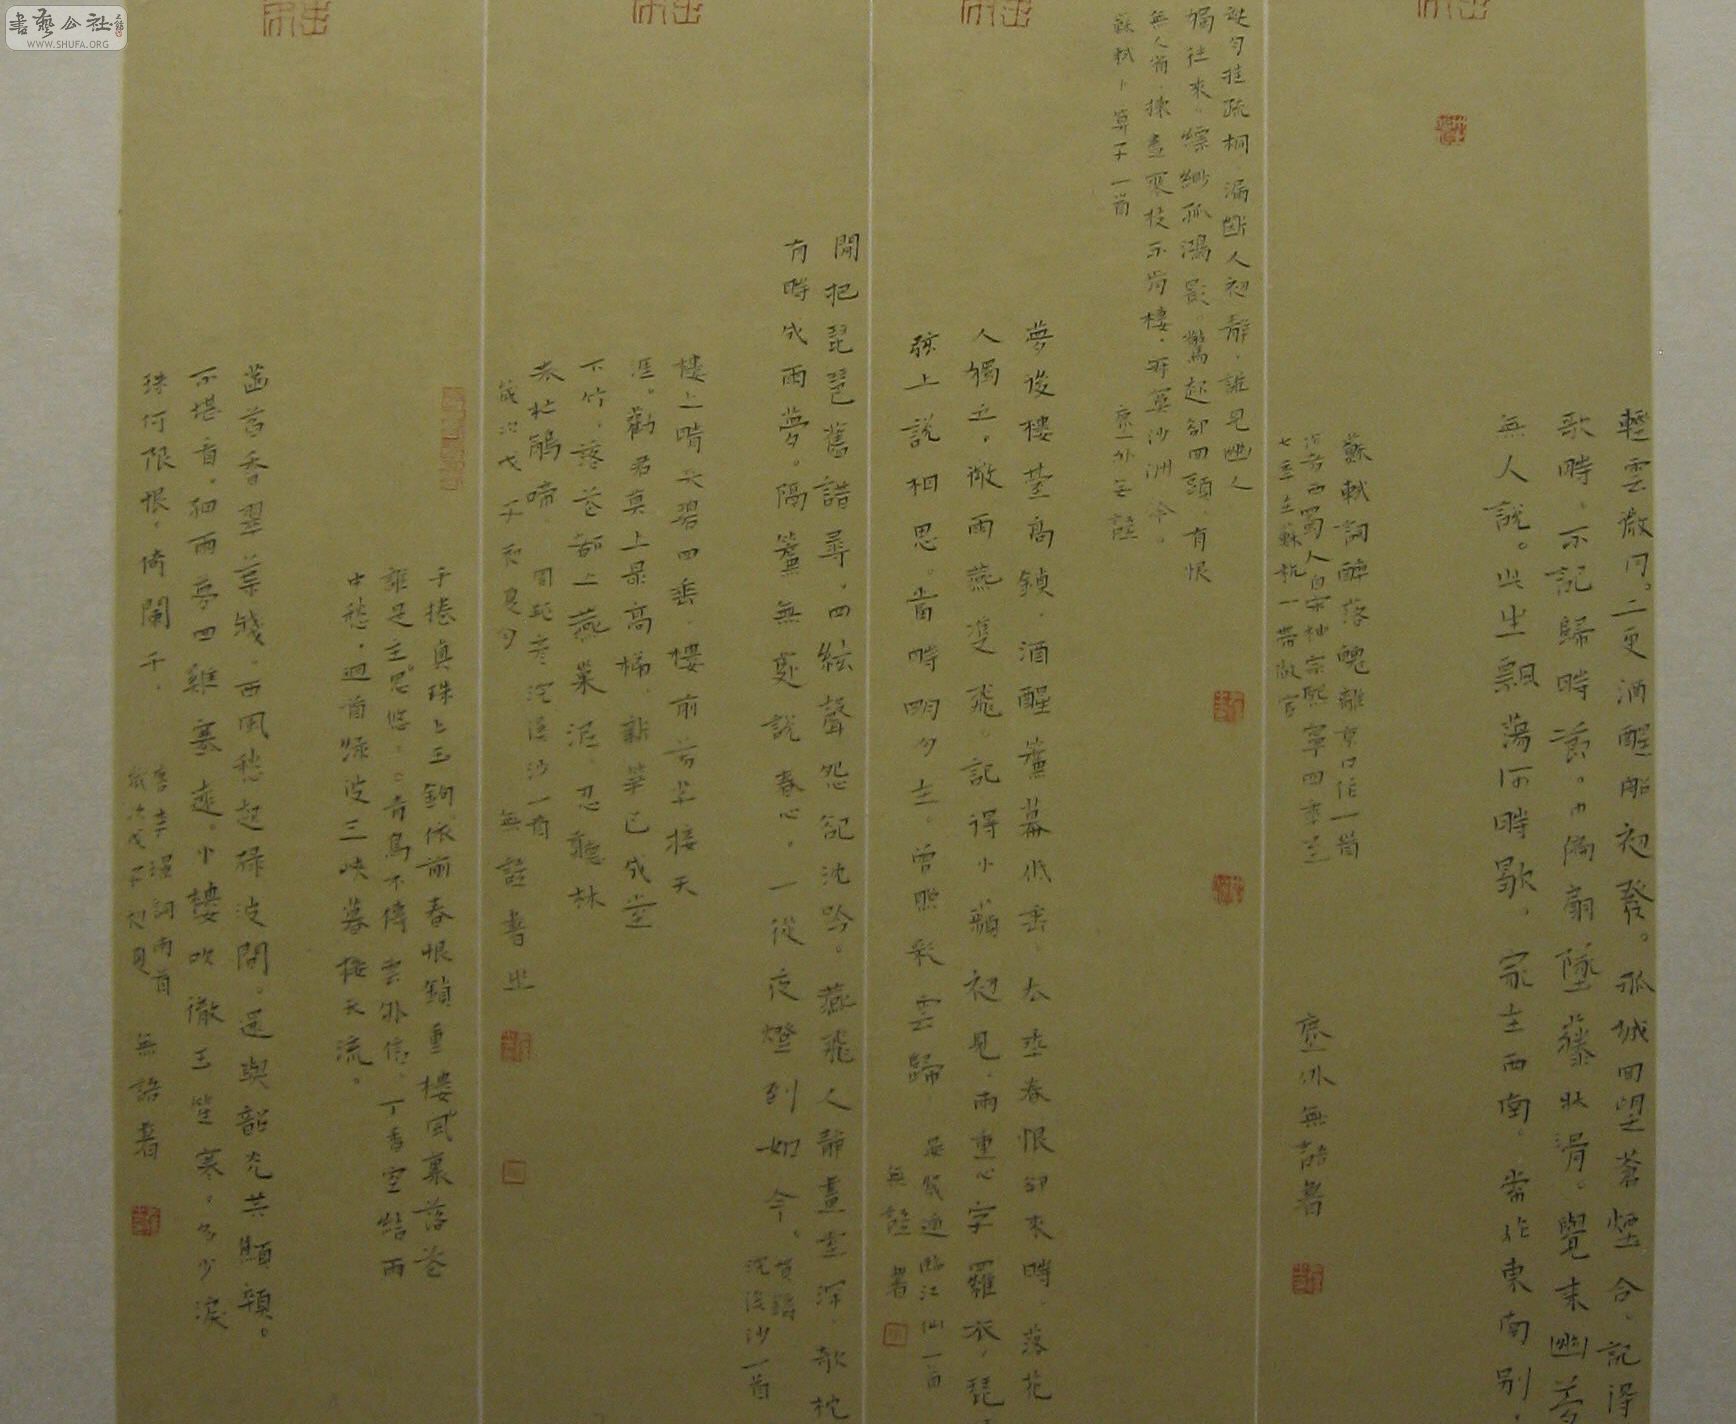 書藝公社
WWW.SHUFA.ORG
輕雲微月。二更酒醒船初發。孤城回望蒼煙合。記得
歌時。不記歸時節。巾偏扇墜藤牀滑。覺來幽夢
無人說。此生飄蕩何時歇。家在西南。常作東南別。
蘇軾詞醉落魄離京口作一首
西蜀人自宋神宗熙寧四年至
七年在蘇杭一帶做官
塵外無語書
缺月挂疏桐漏斷人初靜。誰見幽人
獨往來。縹緲孤鴻影驚起卻回頭有恨
無人省揀盡寒枝不肯棲。寂寞沙洲冷。
蘇軾卜算子一首
塵外無語
夢後樓臺高鎖。酒醒簾幕低垂。去年春恨卻來時。落花
人獨立。微雨燕雙飛。記得小蘋初見。兩重心字羅衣。琵
弦上說相思。當時明月在。曾照彩雲歸
晏幾道臨江仙一首
無語書
閒把琵琶舊譜尋。四絃聲怨卻沈吟。燕飛人靜畫堂深。欹枕
有時成雨夢。隔簾無處說春心。一從夜燈到如今。
賀鑄
浣溪沙一首
樓上晴天碧四垂。樓前芳草接天
涯。勸君莫上最高梯。新筍已成堂
下竹。落花都上燕巢泥。忍聽林
表杜鵑啼。周邦彥浣溪沙一首
歲次戊子初夏月 無語書
手捲真珠上玉鉤。依前春恨鎖重樓。風裏落花
誰是主。思悠悠。青鳥不傳雲外信。丁香空結雨
中愁。迴首綠波三峽暮。接天流。
菡萏香翠葉殘。西風愁起綠波間。還與韶光共顦顇。
不堪看。細雨夢回雞塞遠。小樓吹徹玉笙寒。多少淚
珠何限恨。倚闌干。
李璟詞兩首
歲次戊子初夏
無語書